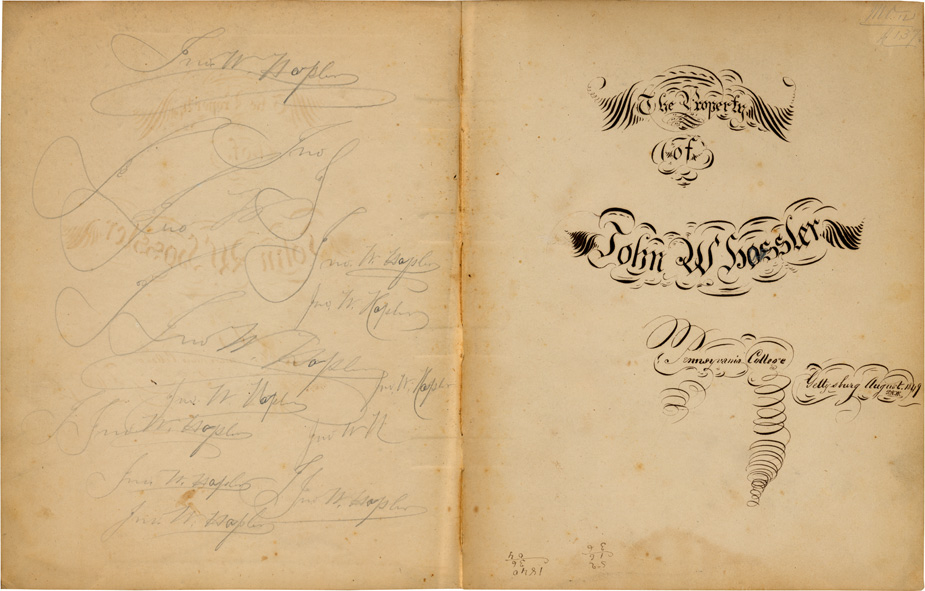 Jno. W. Hossler
Jno
Jno. W. Hossler
Jno. W. Hossler
Jno. W. Hossler
Jno. W. Hossler
Jno. W. Hossler
Jno. W. Hossler
Jno. W. H
Jno. W. Hossler
Jno. W. Hossler
Jno. W. Hossler
The Property
of
John W Hossler
Pennsylvania College
Gettysburg August 1849